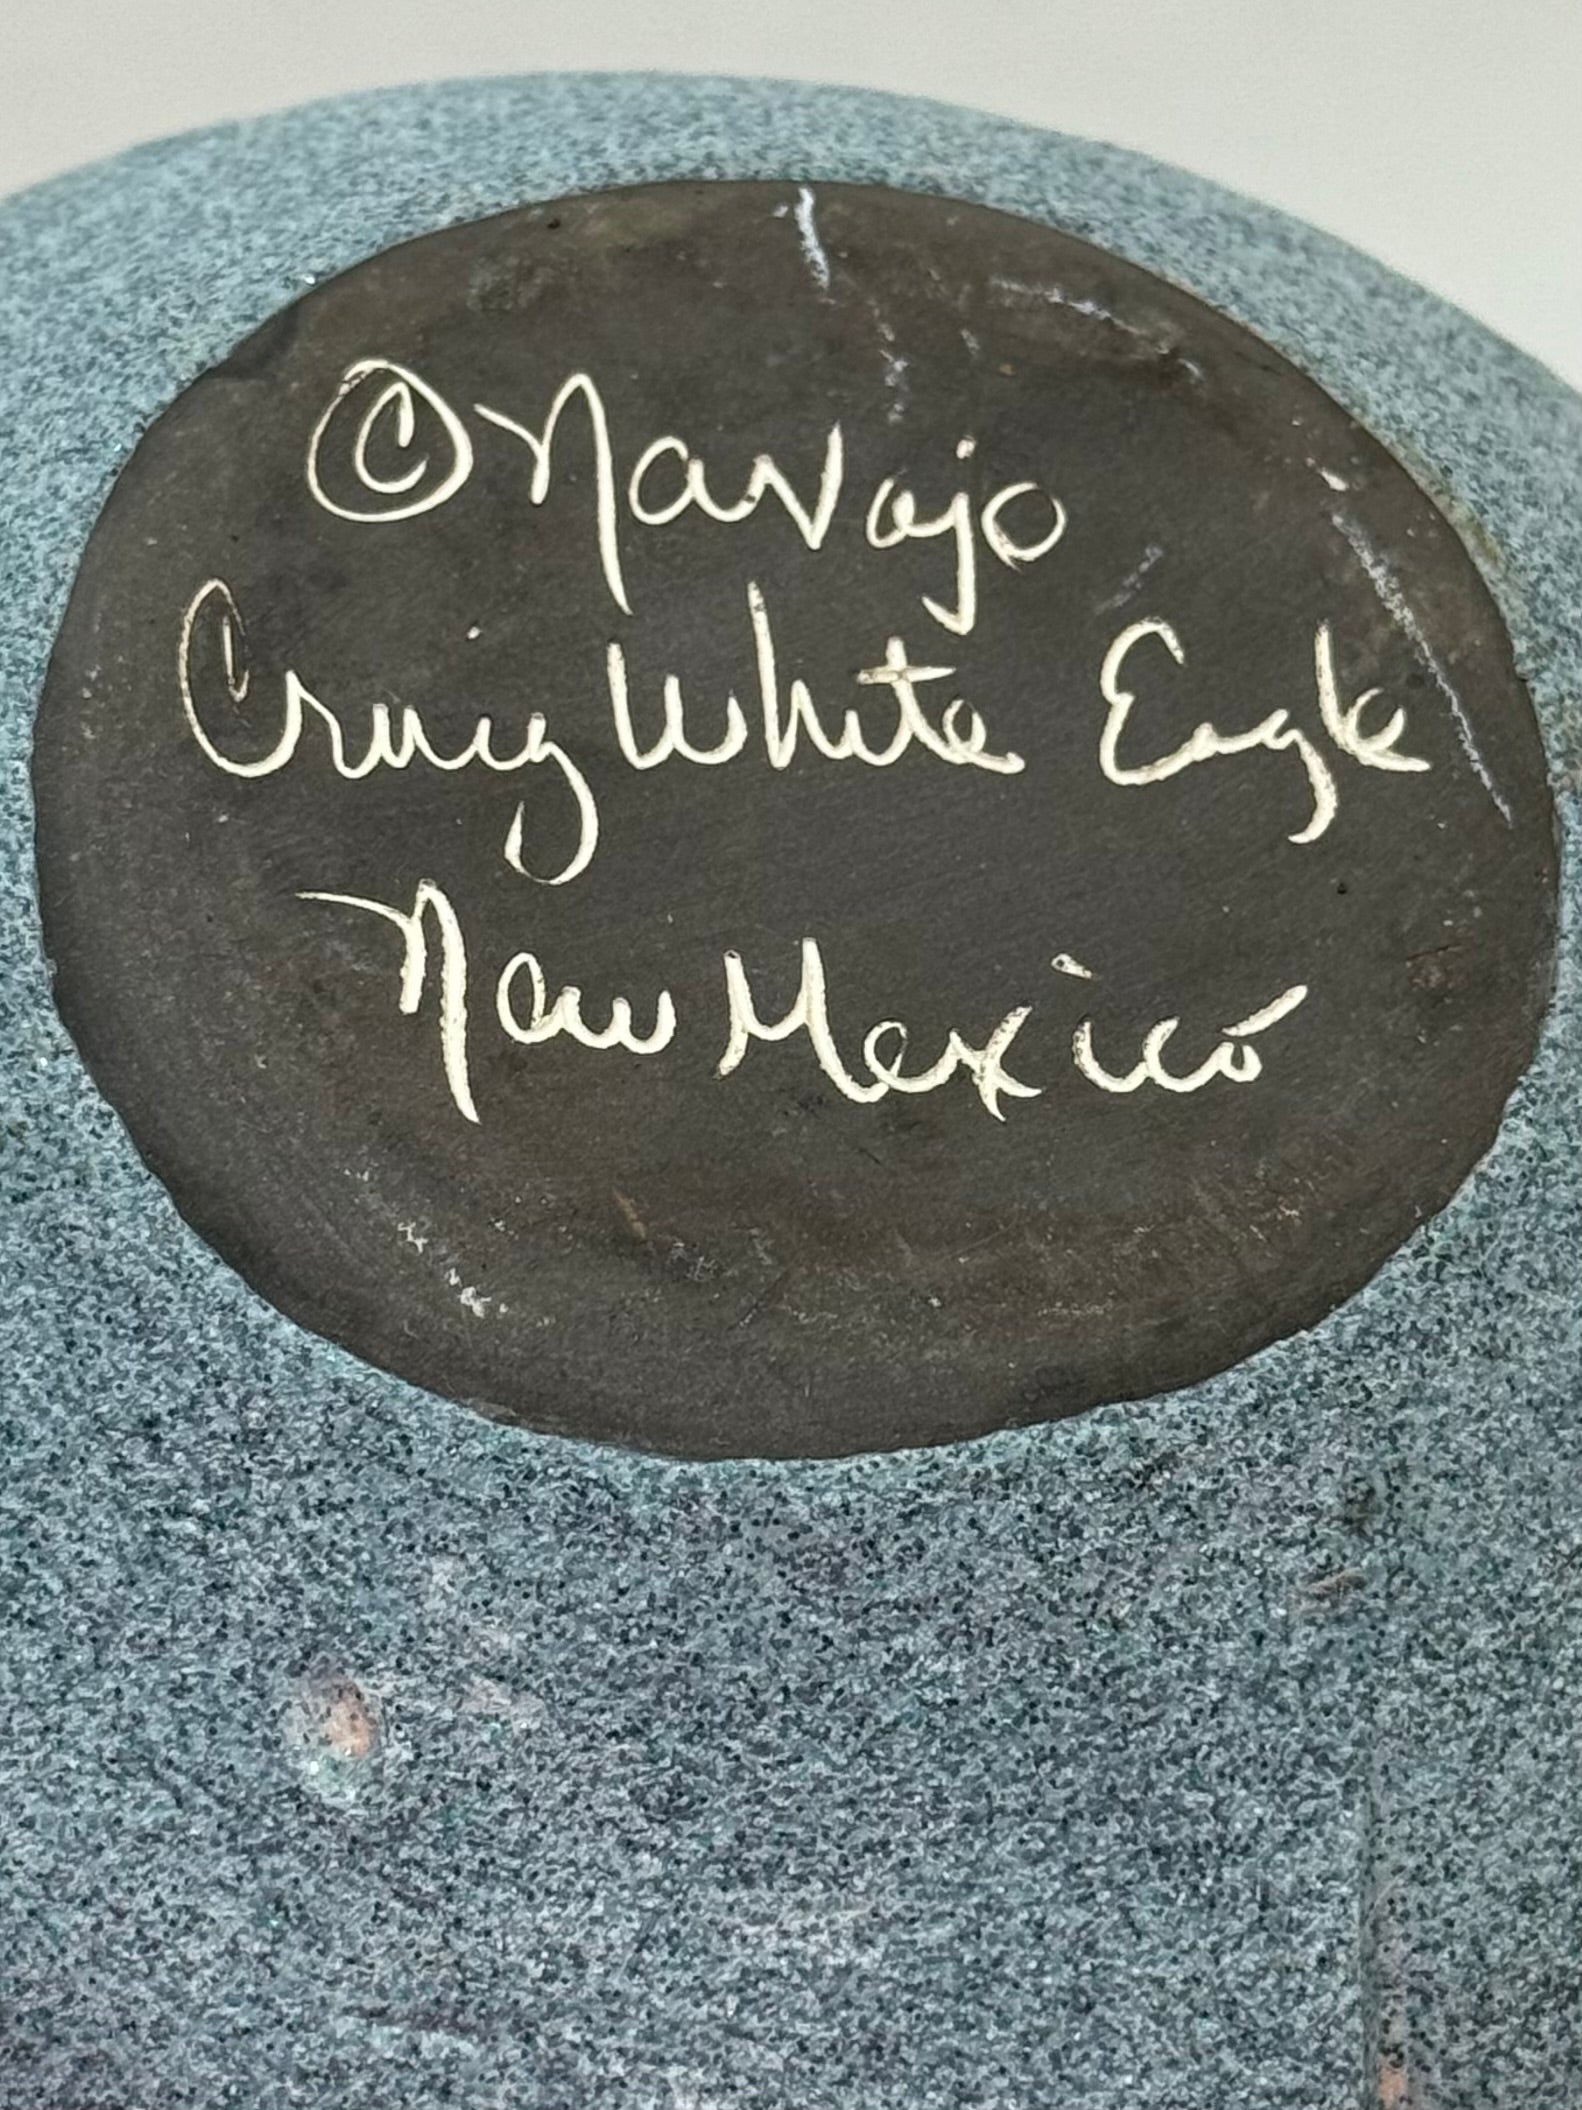 © Navajo
Craig White Eagle
New Mexico